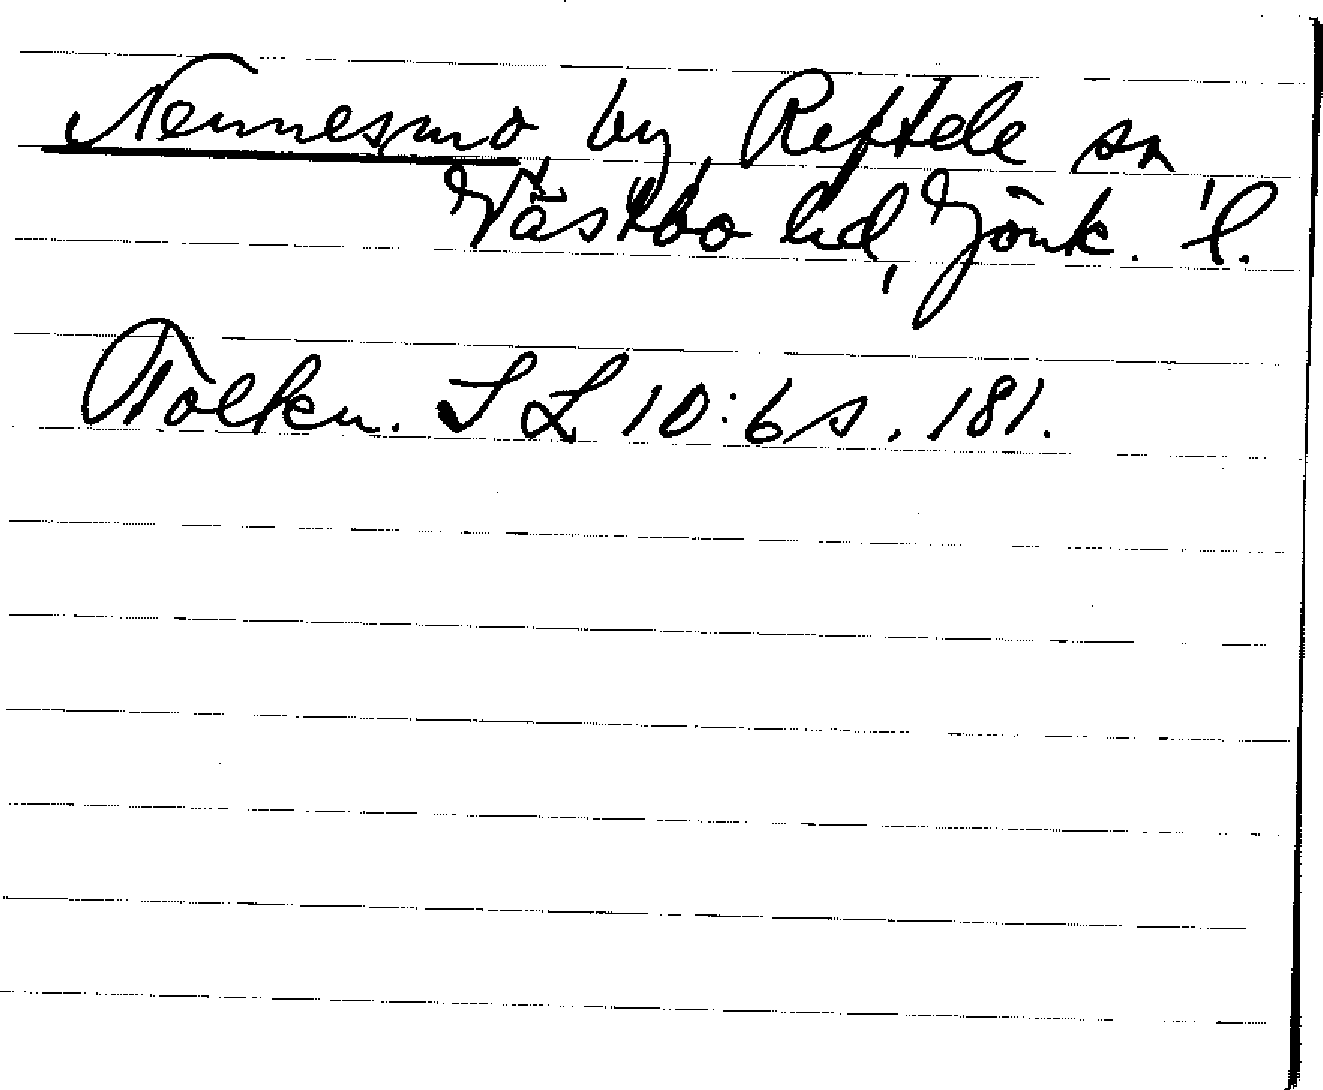 Nennesmo, by, Reftele sn
Västbo hd, Jönk. l.
Tolkn. SL 10:6 s. 181.